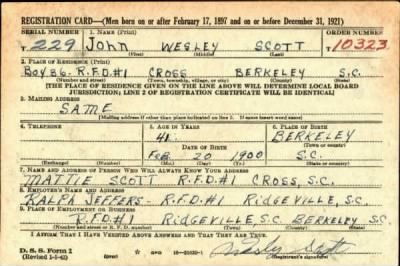 REGISTRATION CARD—(Men born on or after February 17, 1897 and on or before December 31, 1921)
SERIAL NUMBER 1. NAME (Print) ORDER NUMBER
T 229 John WESLEY SCOTT 10323
(First) (Middle) (Last)
2. PLACE OF RESIDENCE (Print)
BOX 86 - R.F.D.#1 CROSS BERKELEY S.C.
(Number and street) (Town, township, village, or city) (County) (State)
[THE PLACE OF RESIDENCE GIVEN ON THE LINE ABOVE WILL DETERMINE LOCAL BOARD
JURISDICTION; LINE 2 OF REGISTRATION CERTIFICATE WILL BE IDENTICAL]
3. MAILING ADDRESS
SAME
[Mailing address if other than place indicated on line 2. If same insert word same]
4. TELEPHONE 5. AGE IN YEARS 6. PLACE OF BIRTH
BERKELEY
DATE OF BIRTH (Town or county)
FEB 20 1900 S.C.
(Exchange) (Number) (Mo.) (Day) (Yr.) (State or country)
7. NAME AND ADDRESS OF PERSON WHO WILL ALWAYS KNOW YOUR ADDRESS
MATTIE SCOTT R.F.D.#1 CROSS, S.C.
8. EMPLOYER'S NAME AND ADDRESS
RALPH JEFFERS - R.F.D.#1 RIDGEVILLE, S.C.
9. PLACE OF EMPLOYMENT OR BUSINESS
R.F.D.#1 RIDGEVILLE, S.C. BERKELEY S.C.
(Number and street or R. F. D. number) (Town) (County) (State)
I AFFIRM THAT I HAVE VERIFIED ABOVE ANSWERS AND THAT THEY ARE TRUE.
D. S. S. Form 1
(Revised 1-1-42) (over) Wesley Scott
(Registrant's signature)